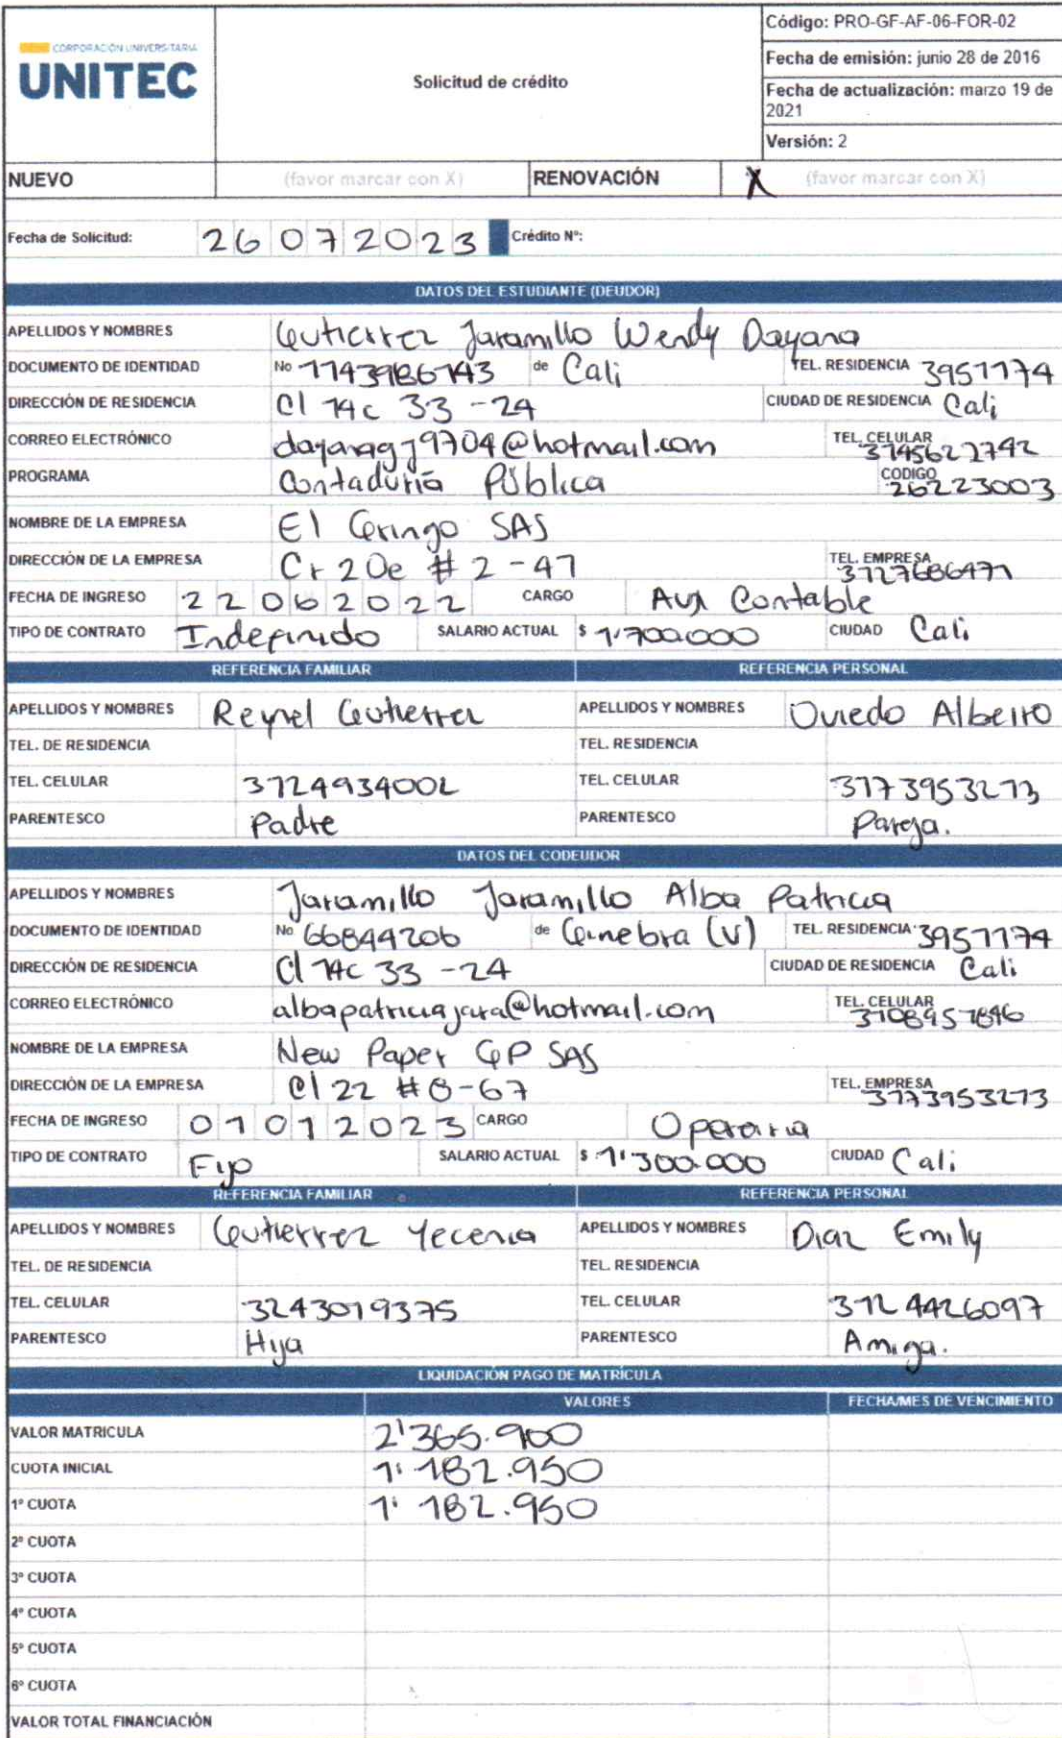 CORPORACIÓN UNIVERSITARIA
UNITEC
Solicitud de crédito
Código: PRO-GF-AF-06-FOR-02
Fecha de emisión: junio 28 de 2016
Fecha de actualización: marzo 19 de
2021
Versión: 2
NUEVO (favor marcar con X) RENOVACIÓN X (favor marcar con X)
Fecha de Solicitud: 26 07 2023 Crédito Nº:
DATOS DEL ESTUDIANTE (DEUDOR)
APELLIDOS Y NOMBRES Gutierrez Jaramillo Wendy Dayana
DOCUMENTO DE IDENTIDAD No 1143986143 de Cali TEL. RESIDENCIA 3951174
DIRECCIÓN DE RESIDENCIA Cl 14c 33 - 24 CIUDAD DE RESIDENCIA Cali
CORREO ELECTRÓNICO TEL. CELULAR
PROGRAMA Contaduría Pública CODIGO 26223003
NOMBRE DE LA EMPRESA El Gringo SAS
DIRECCIÓN DE LA EMPRESA Cr 20e # 2 - 47 TEL. EMPRESA
FECHA DE INGRESO 22 06 2022 CARGO Aux Contable
TIPO DE CONTRATO Indefinido SALARIO ACTUAL $ 1'700.000 CIUDAD Cali
REFERENCIA FAMILIAR REFERENCIA PERSONAL
APELLIDOS Y NOMBRES Reynel Gutierrez APELLIDOS Y NOMBRES Oviedo Albeiro
TEL. DE RESIDENCIA TEL. RESIDENCIA
TEL. CELULAR 3124934002 TEL. CELULAR 3173953213
PARENTESCO Padre PARENTESCO Pareja.
DATOS DEL CODEUDOR
APELLIDOS Y NOMBRES Jaramillo Jaramillo Alba Patricia
DOCUMENTO DE IDENTIDAD No 66844206 de Ginebra (V) TEL. RESIDENCIA 3951174
DIRECCIÓN DE RESIDENCIA Cl 14c 33 - 24 CIUDAD DE RESIDENCIA Cali
CORREO ELECTRÓNICO albapatriciajara@hotmail.com TEL. CELULAR
NOMBRE DE LA EMPRESA New Paper GP SAS
DIRECCIÓN DE LA EMPRESA Cl 22 # 8-67 TEL. EMPRESA 3173953213
FECHA DE INGRESO 01 01 2023 CARGO Operaria
TIPO DE CONTRATO Fijo SALARIO ACTUAL $ 1'300.000 CIUDAD Cali
REFERENCIA FAMILIAR REFERENCIA PERSONAL
APELLIDOS Y NOMBRES Gutierrez Yecenia APELLIDOS Y NOMBRES Diaz Emily
TEL. DE RESIDENCIA TEL. RESIDENCIA
TEL. CELULAR 3243019375 TEL. CELULAR 3124426097
PARENTESCO Hija PARENTESCO Amiga.
LIQUIDACIÓN PAGO DE MATRÍCULA
VALORES FECHA/MES DE VENCIMIENTO
VALOR MATRICULA 2'365.900
CUOTA INICIAL 1'182.950
1º CUOTA 1'182.950
2º CUOTA
3º CUOTA
4º CUOTA
5º CUOTA
6º CUOTA
VALOR TOTAL FINANCIACIÓN